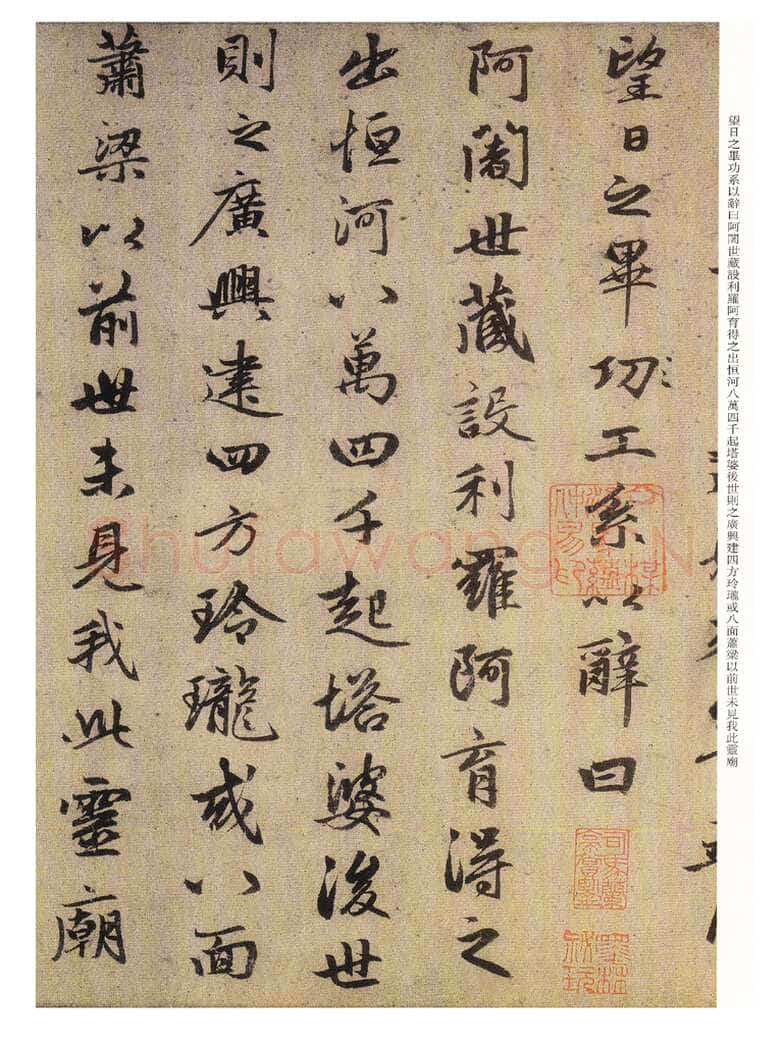 望日之畢功工系以辭曰
阿闍世藏設利羅阿育得之
出恒河八萬四千起塔婆後世
則之廣興建四方玲瓏或八面
蕭梁以前世未見我此靈廟
望日之畢功系以辭曰阿闍世藏設利羅阿育得之出恒河八萬四千起塔婆後世則之廣興建四方玲瓏或八面蕭梁以前世未見我此靈廟